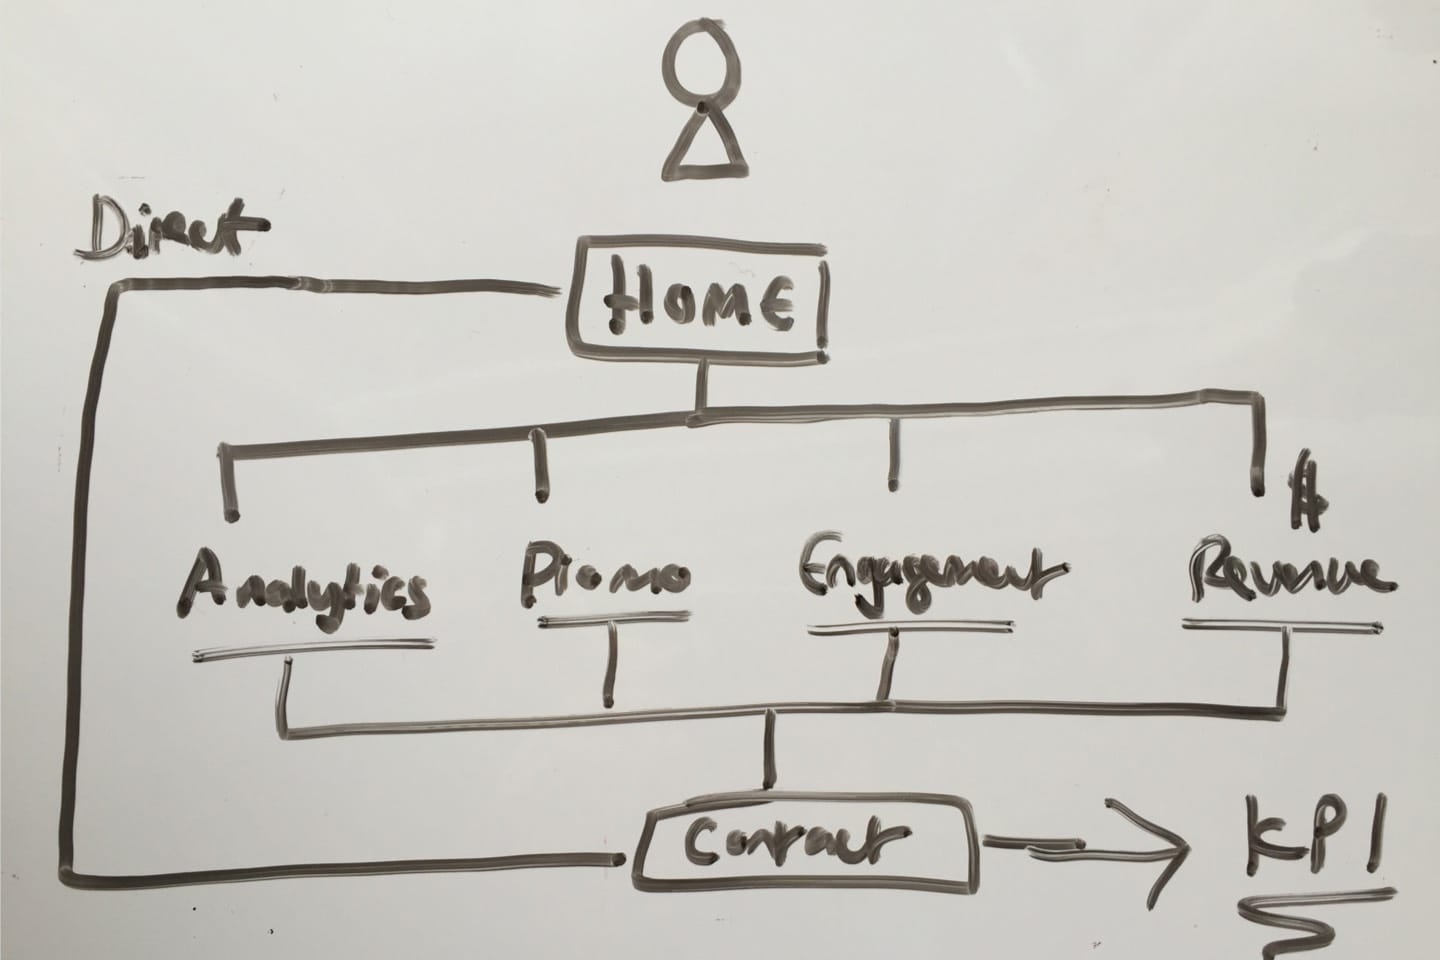 Direct
HOME
#
Analytics
Promo
Engagement
Revenue
Contact
KPI